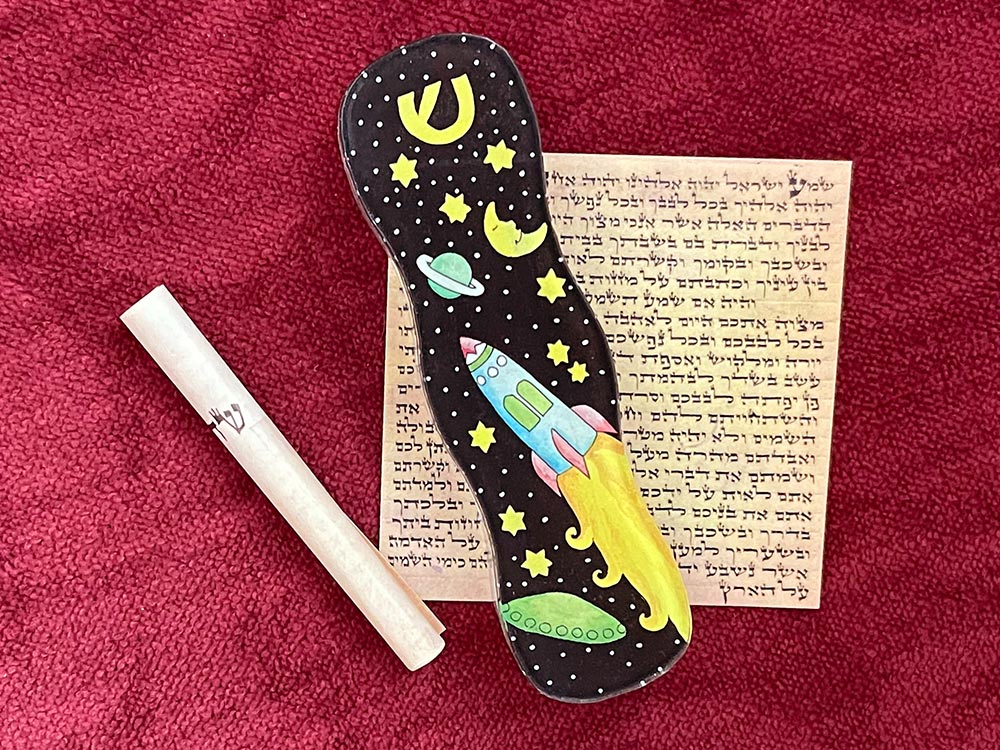 ש
ש
שמע ישראל יהוה אלהינו יהוה
יהוה אלהיך בכל לבבך ובכל נפשך
הדברים האלה אשר אנכי מצוך
לבניך ודברת בם בשבתך
ובשכבך ובקומך וקשרתם
בין עיניך וכתבתם על מזוזות
והיה אם שמע
מצוה אתכם היום לאהבה
בכל לבבכם ובכל נפשכם
יורה ומלקוש ואספת
עשב בשדך לבהמתך
פן יפתה לבבכם
והשתחויתם להם את
השמים ולא יהיה
ואבדתם מהרה מעל לכם
ושמתם את דברי וקשרתם
אתם לאות על ידכם ולמדתם
אתם את בניכם ובלכתך
בדרך
ובשעריך למען על האדמה
אשר נשבע כימי השמים
על הארץ